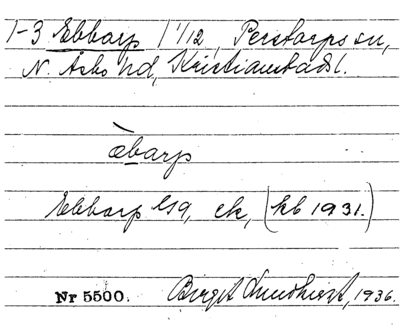 1-3 Ebbarp 1 1/12, Perstorps sn,
N. Åsbo hd, Kristianstads l.
æ̀barp
Ebbarp lsg, ek, (kb 1931.)
Nr 5500. Birgit Lundkvist, 1936.